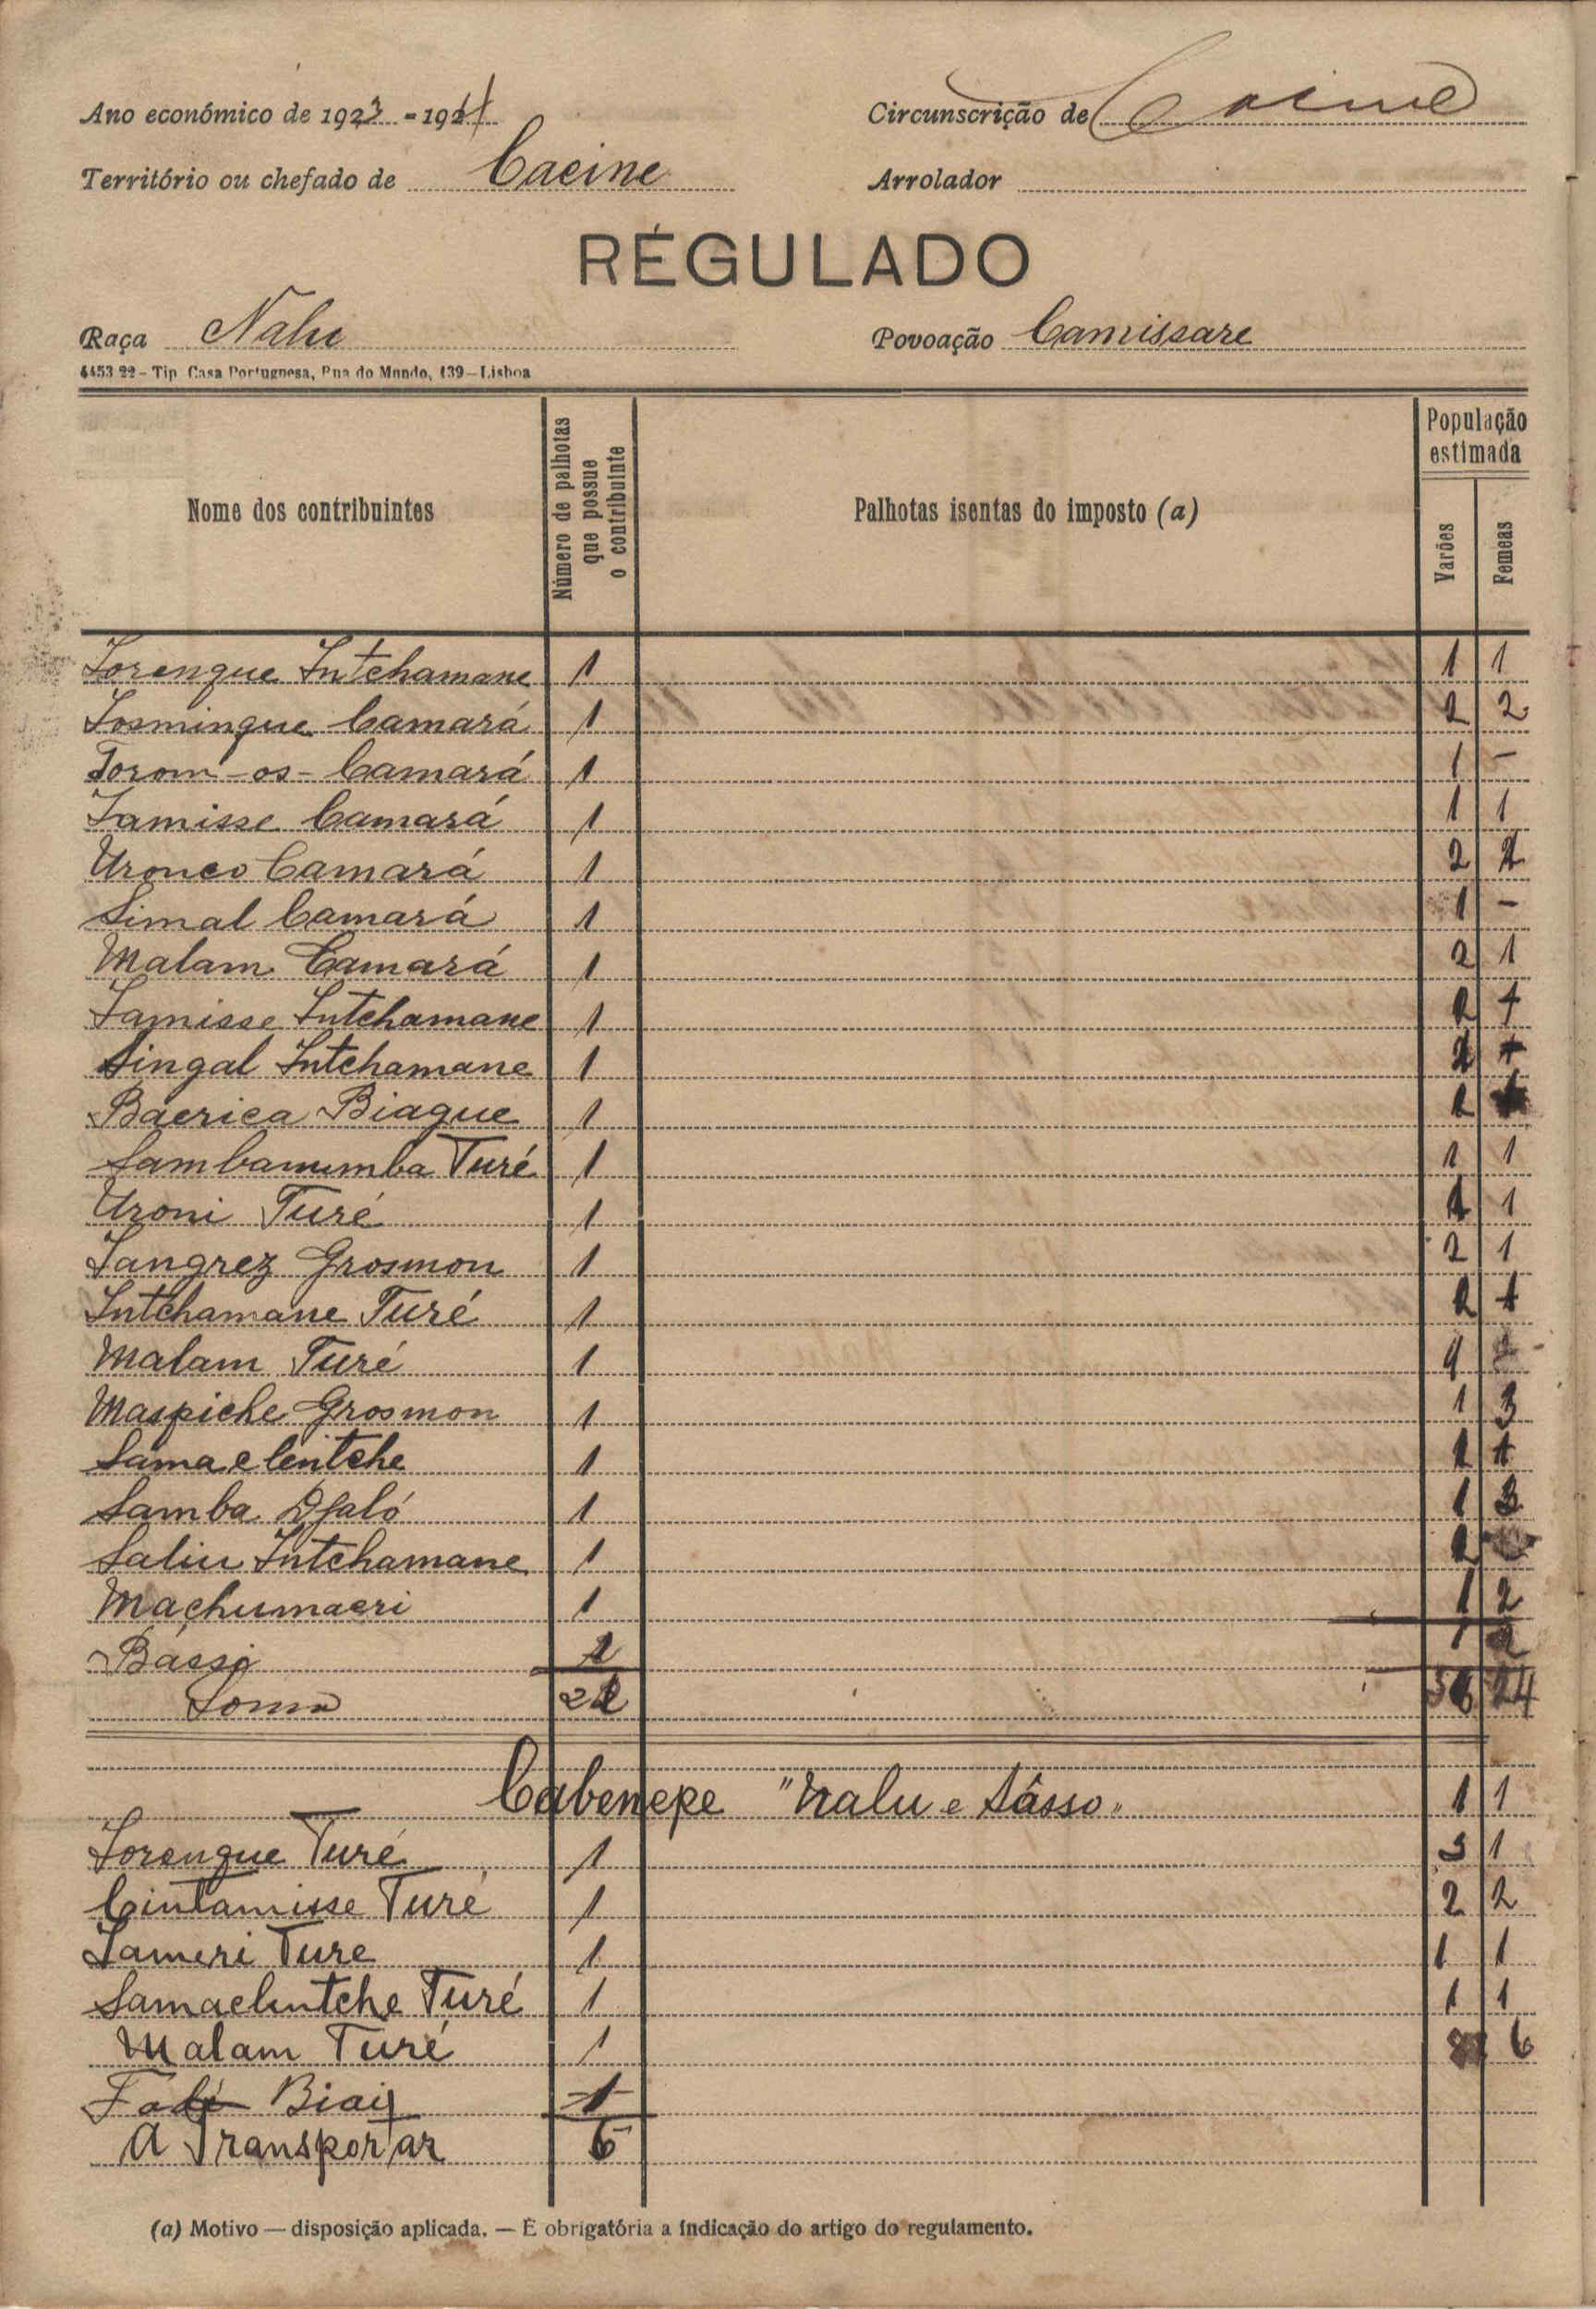 Ano económico de 1923 - 1924 Circunscrição de Cacine
Território ou chefado de Cacine Arrolador
RÉGULADO
Raça Nalu Povoação Camissare
4453 22 - Tip Casa Portuguesa, Rua do Mundo, 139 - Lisboa
Nome dos contribuintes
Número de palhotas que possue o contribuinte
Palhotas isentas do imposto (a)
População estimada
Varões
Femeas
Lorenque Intchamane 1 1 1
Losmingue Camará 1 2 2
Torom-os-Camará 1 1 -
Lamisse Camará 1 1 1
Uronco Camará 1 2
Simal Camará 1 1 -
Malam Camará 1 2 1
Lamisse Intchamane 1 2 1
Singal Intchamane 1
Baerica Biague 1 2
Sambanumba Turé 1 1 1
Uroni Turé 1 1
Tangrez Grosmon 1 2 1
Intchamane Turé 1 2 1
Malam Turé 1
Maspiche Grosmon 1 1 3
Samaclentche 1 1
Samba Djaló 1 1 3
Saliu Intchamane 1 2
Machumaeri 1 1 2
Bassi 1
Soma 24
Cabenepe "Nalu e Sôsso" 1 1
Lorenque Turé 1 3 1
Cintamisse Turé 1 2 2
Lameri Ture 1 1 1
Samaclentche Turé 1 1 1
Malam Turé 1 6
Biai 1
A Transportar 6
(a) Motivo — disposição aplicada. — É obrigatória a indicação do artigo do regulamento.